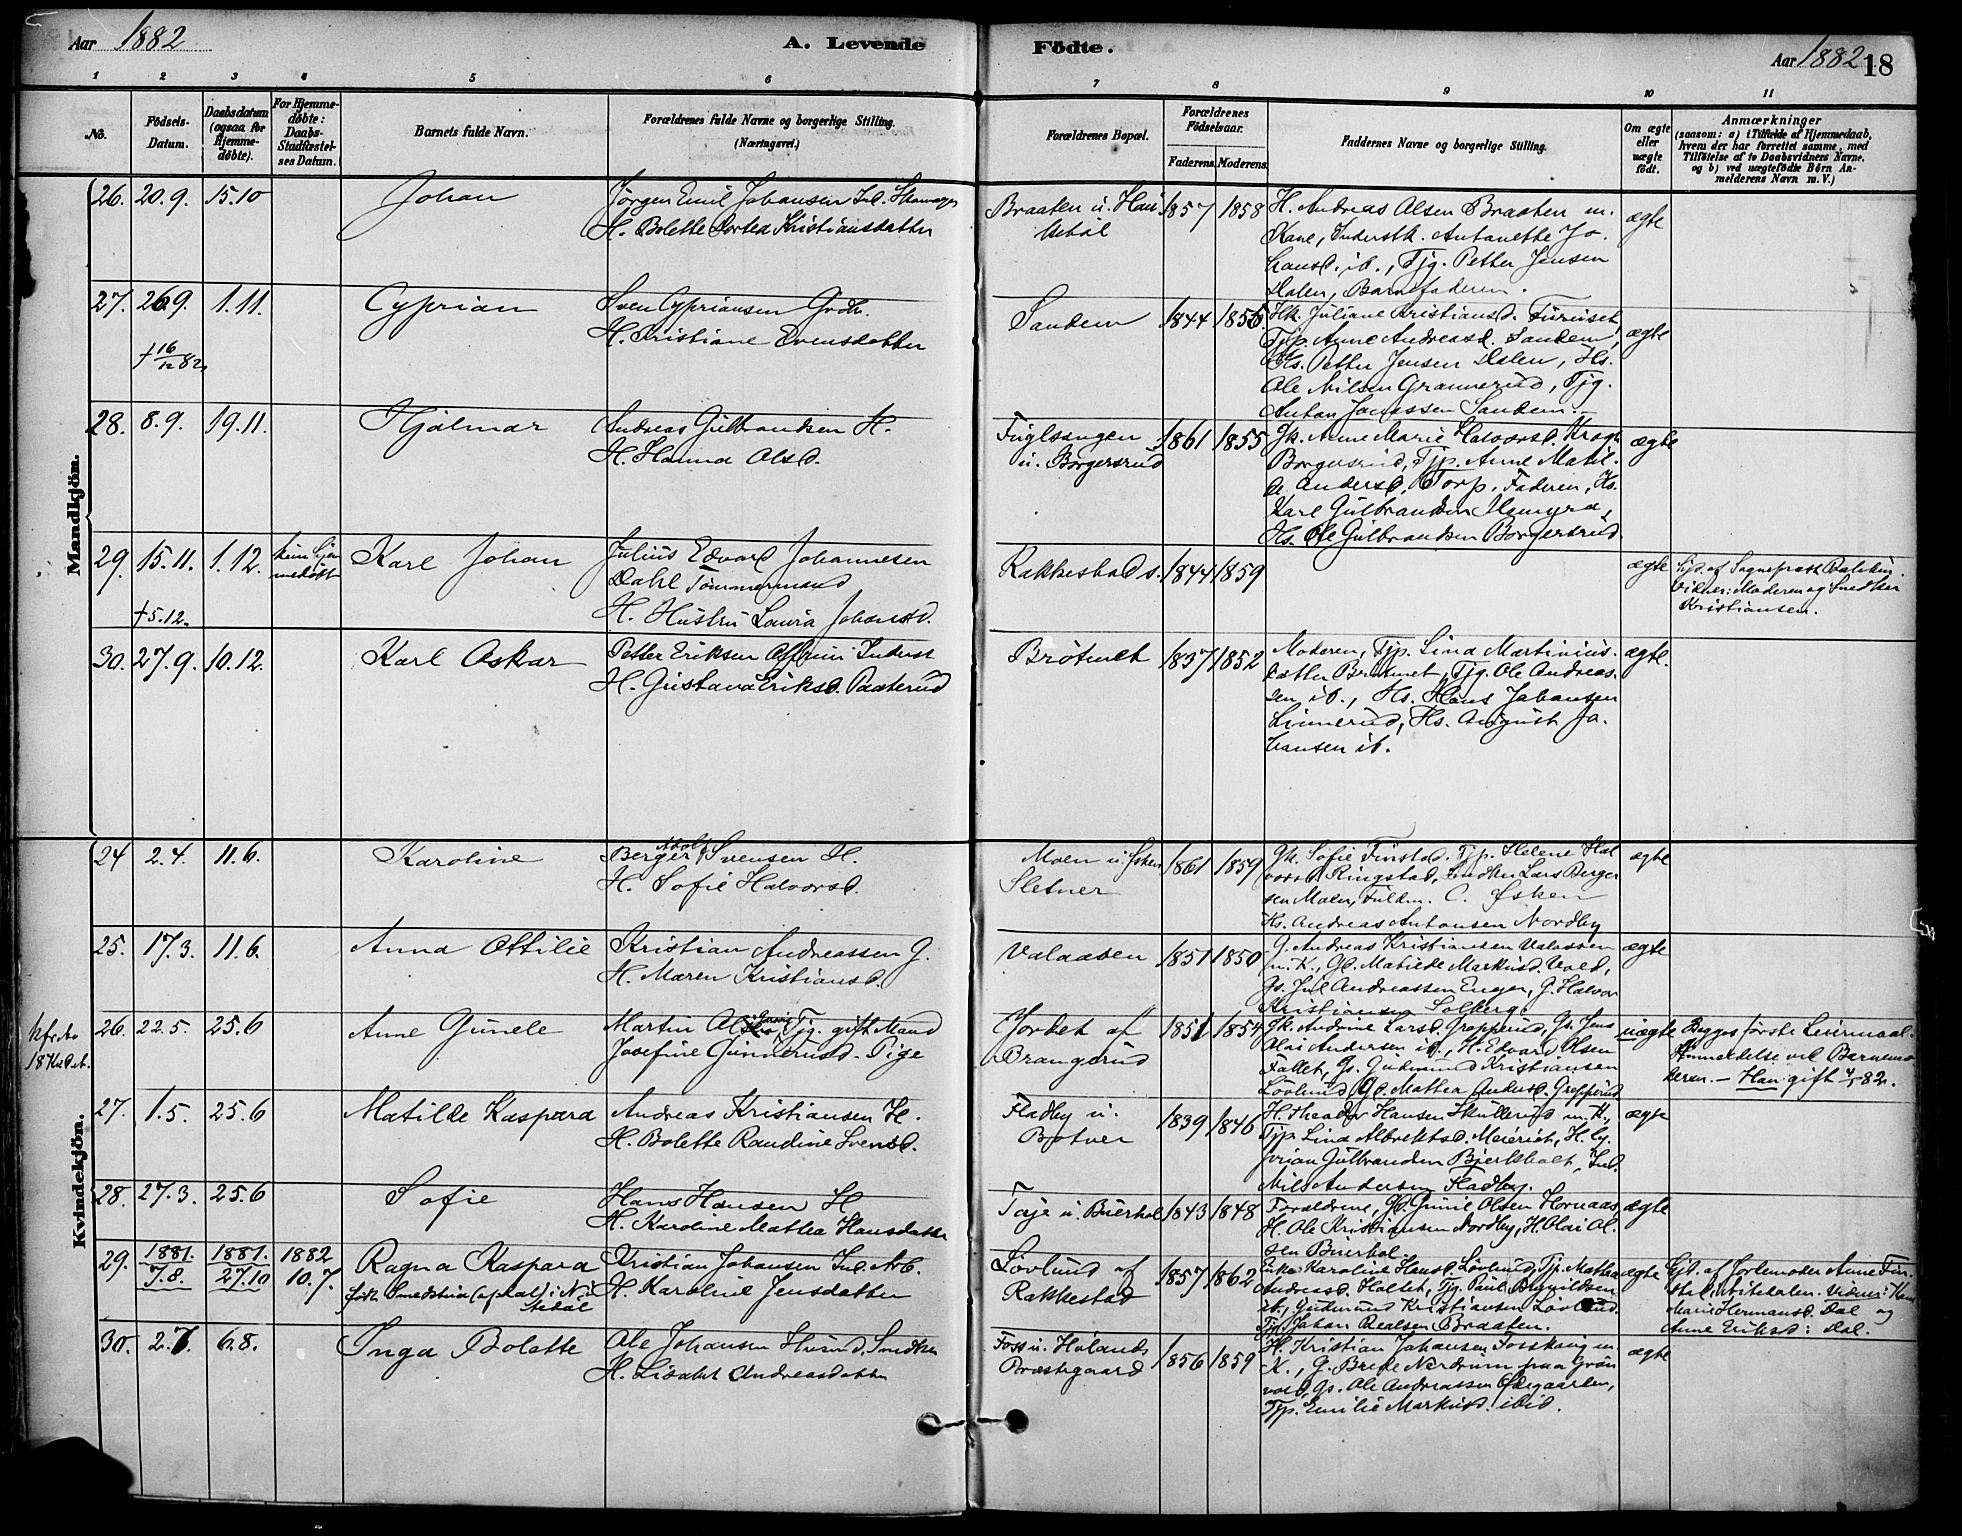 Aar 1882
A. Levende
Födte.
Aar 1882 18
1 2 3 4 5 6 7 8 9 10 11
No.
Födsels-
Datum.
Daabsdatum
(ogsaa for
Hjemme-
døbte).
For Hjemme-
døbte:
Daabs-
Stadfæstel-
ses Datum.
Barnets fulde Navn.
Forældrenes fulde Navne og borgerlige Stilling.
(Næringsvei.)
Forældrenes Bopæl.
Forældrenes
Födselsaar.
Faderens. Moderens.
Faddernes Navne og borgerlige Stilling.
Om ægte
eller
uægte
født.
Anmærkninger
(saasom: a) i Tilfælde af Hjemmedaab,
hvem der har forrettet samme, med
Tilføielse af to Daabsvidners Navne,
og b) ved uægtefødte Børn An-
melderens Navn m. V.)
Mandkjön.
26. 20.9. 15.10 Johan
Jørgen Emil Johansen Ind.
H. Bolette Dortea Kristiansdatter
Braaten u.
1857 1858
H. Andreas Olsen Braaten m.
Kone, Inderstk. Antonette Jo-
hansd. ib., Tjg. Petter Jensen
Dalen, Barnefaderen.
ægte
27. 26.9. 1.11. Cyprian
† 16/12 82
Sven Cypriansen Grdbr.
H. Kristiane Evensdatter
Sandem 1844 1856
Hk. Juliane Kristiansd. Furuset,
Tjp. Anne Andreasd. Sandem,
Hs. Petter Jensen Dalen, Hs.
Ole Nilsen Grannerud, Tjg.
Anton Jonassen Sandem.
ægte
28. 8.9. 19.11. Hjalmar
Andreas Gulbrandsen H.
H. Hanna Olsd.
Fuglesangen
u. Borgersrud
1861 1855
Gk. Anne Marie Halvorsd. Krogh
Borgersrud, Tjp. Anne Matil-
de Andersd. Torp, Faderen, Hs.
Karl Gulbrandsen
Hs. Ole Gulbrandsen Borgersrud.
ægte
29. 15.11. 1.12. kun hjem
medøbt Karl Johan
† 5.12.
Julius Edvard Johannesen
Dahl Tømmermand
H. Hustru Laura Johansd.
Rakkestad s. 1844 1859
ægte
Hjd. af Sognepræst
Vidner: Moderen og Snedker
Kristiansen.
30. 27.9. 10.12. Karl Oskar
Petter Eriksen Inderst
H. Gustava Eriksd. Paaterud
Brøtmet 1837 1852
Moderen, Tjp. Lina Martinius-
datter Brøtmet, Tjg. Ole Andreas-
sen ib., Hs. Hans Johansen
Linnerud, Hs. August Jo-
hansen ib.
ægte.
Kvindekjön.
24 2.4. 11.6. Karoline
Berger Adolf Svensen H.
H. Sofie Halvorsd.
Moen u. Østen
Sletner
1861 1859
Gk. Sofie Finstad. Tjp. Helene Hal
vorsd. Ringstad, Snedker Lars Berger
sen Moen,
Hs. Andreas Antonsen Nordby
ægte
25. 17.3. 11.6. Anna Ottilie
Kristian Andreassen G.
H. Maren Kristiansd.
Valaasen 1851 1850
G. Andreas Kristiansen Valaasen
m. K., Gd. Matilde Markusd. Vold,
Gs. Jul Andreassen Enger, G. Halvor
Kristiansen Solberg
ægte
26. 22.5. 25.6 Anne Gunele
Martin Tjg. gift Mand
Josefine Pige
af
1851 1854
Gk. Andrine Larsd. Grepperud, Gs. Jens
Olai Andersen ib., H. Edvard Olsen
Fallet, Gs. Gudmund Kristiansen
Løvlund, Gd. Mathea Andersd. Grepperud
uægte
Begges første Leiermaal.
Anmeldelse ved Barnemo
deren. — Han gift 82.
27. 1.5. 25.6 Matilde Kaspara
Andreas Kristiansen H.
H. Bolette Randine Svensd.
Fladby u.
Botner
1839 1846
H. Theodor Hansen Skullerud m. K.,
Tjp. Lina Albrektsd. Meieriet, H. Cy-
prian Gulbrandsen Bjerkholt, Ind.
Nils Andersen Fladby.
ægte
28. 27.3. 25.6 Sofie
Hans Hansen H
H. Karoline Mathea Hansdatter
Taje u. Buerhol 1843 1848
Forældrene, Gd. Gunil Olsen Hornaas
H. Ole Kristiansen Nordby, H. Olai Ol-
sen Buerhol.
ægte
29. 1881. 7.8. 1881. 27.10 1882 10.7. Ragna Kaspara
Kristian Johansen Ind.
H. Karoline Jensdatter
Løvlund af
Rakkestad
1857 1862
Enke Karoline Hansd. Løvlund, Tjp. Mathea
Andreasd. Haltet, Tjg. Paul
ib., Gudmund Kristiansen Løvlund.
Tjg. Johan Braaten.
ægte
Hjd. af Jordemoder Anne
Vidner:
Marie Hermansd. Dal og
Anne Eriksd: Dal.
30. 2.7. 6.8. Inga Bolette
Ole Johansen Snedker
H. Lisabet Andreasdatter
Foss u. Hølands
Præstegaard
1856 1859
H. Kristian Johansen m.
K., G. Brede Nordrum paa Grøn
vold, Gs. Ole Andreassen Ødegaarden,
Tjp. Emilie Markusd. ibid.
ægte